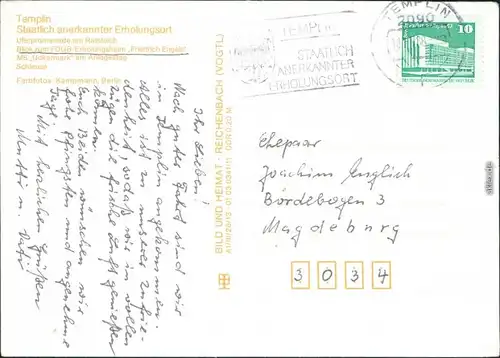 Templin
Staatlich anerkannter Erholungsort
Uferpromenade am Ratsteich
Blick zum FDGB-Erholungsheim „Friedrich Engels“
MS „Uckermark“ am Anlegesteg
Schleuse
Farbfotos: Kampmann, Berlin
Ihr Lieben!
Nach guter Fahrt sind wir
in Templin angekommen.
Alles ist in unserer Zufrie-
denheit, sodaß wir in vollen
Zügen die frische Luft genießen
können.
Euch Beiden wünschen wir
frohe Pfingsten und angenehme
Tage.
Mit herzlichen Grüßen
Mutti u. Vati
BILD UND HEIMAT · REICHENBACH (VOGTL)
DDR 0,20 M
TEMPLIN
STAATLICH
ANERKANNTER
ERHOLUNGSORT
TEMPLIN
2090
10
Ehepaar
Joachim Englich
Bördebogen 3
Magdeburg
3034